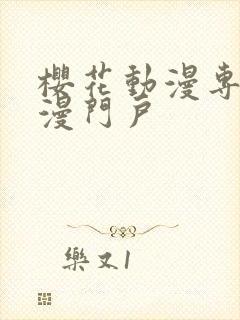 櫻花動漫專
漫門戶
樂又1